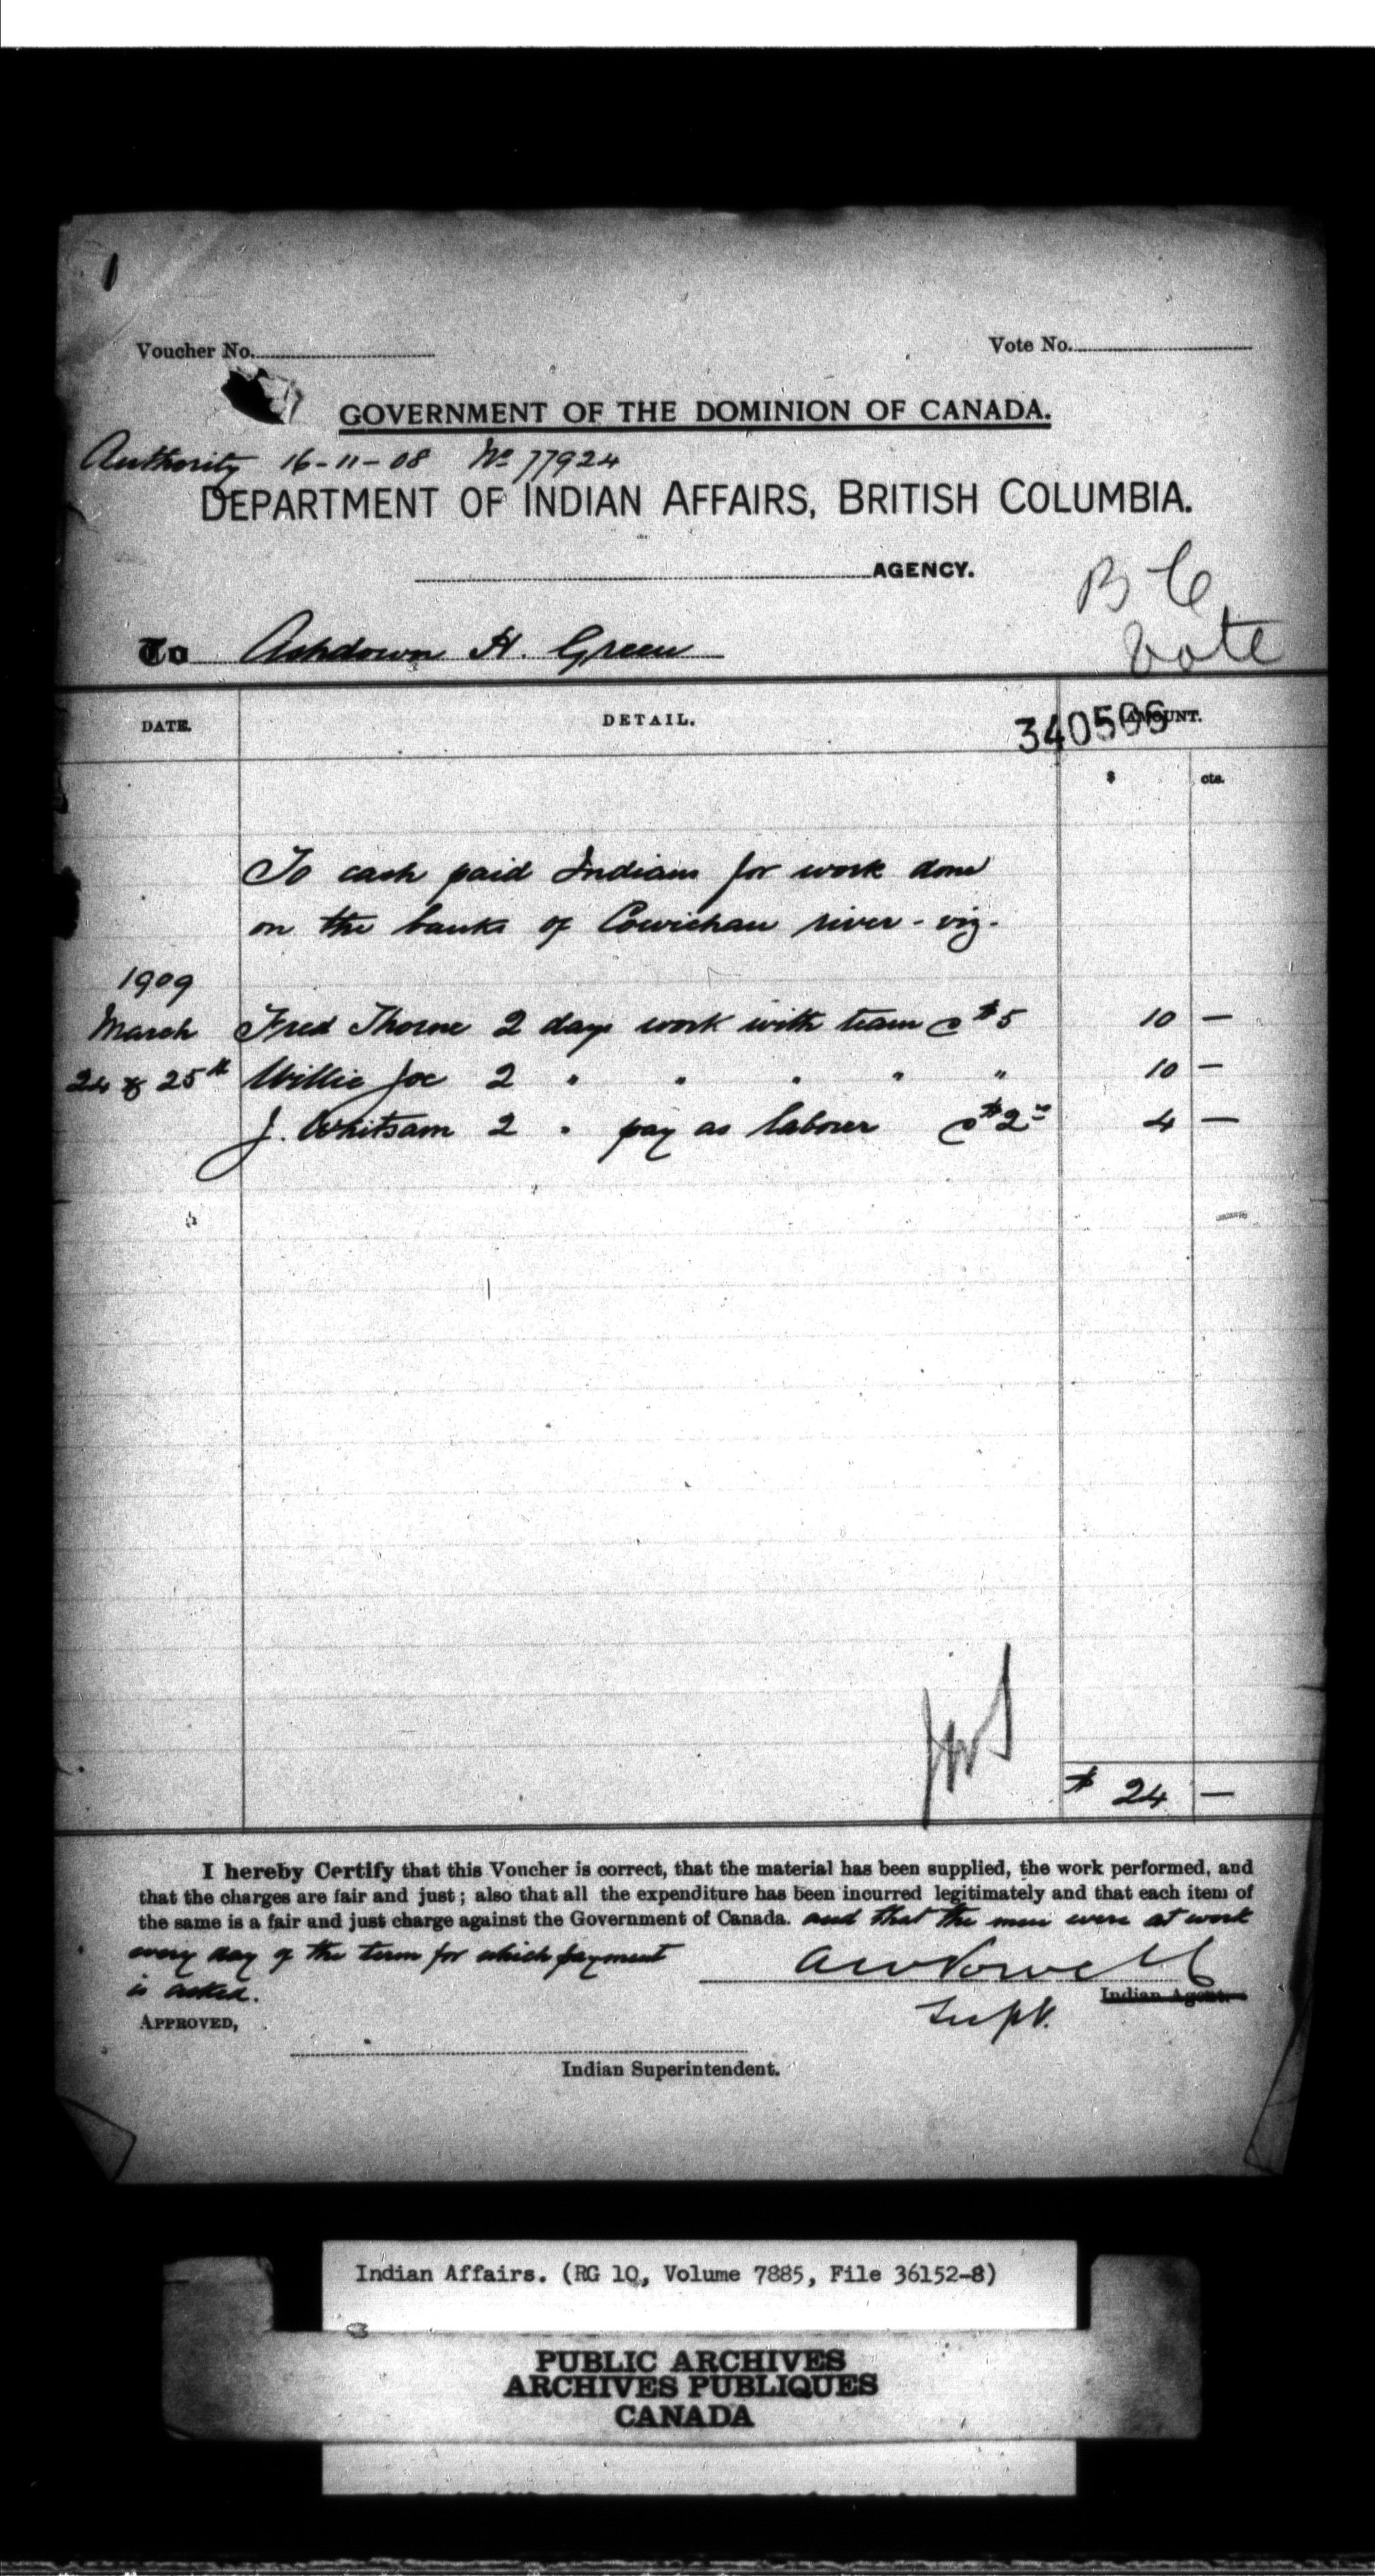 Voucher No.
Vote No.
GOVERNMENT OF THE DOMINION OF CANADA.
Authority 16-11-08 No 77924
DEPARTMENT OF INDIAN AFFAIRS, BRITISH COLUMBIA.
AGENCY.
B C
Vote
To Ashdown H. Green
DATE. DETAIL. AMOUNT.
340506
$ cts.
To cash paid Indians for work done
on the banks of Cowichan river - viz.
1909
March Fred Thorne 2 days work with team @ $5 10 —
24 & 25th Willie Joe 2 " " " " " 10 —
J. Whitsam 2 " pay as laborer @ $2= 4 —
$ 24 —
I hereby Certify that this Voucher is correct, that the material has been supplied, the work performed, and
that the charges are fair and just; also that all the expenditure has been incurred legitimately and that each item of
the same is a fair and just charge against the Government of Canada. and that the men were at work
every day of the term for which payment
is asked.
AWVowell
Indian Agent.
Supt.
APPROVED,
Indian Superintendent.
Indian Affairs. (RG 10, Volume 7885, File 36152-8)
PUBLIC ARCHIVES
ARCHIVES PUBLIQUES
CANADA